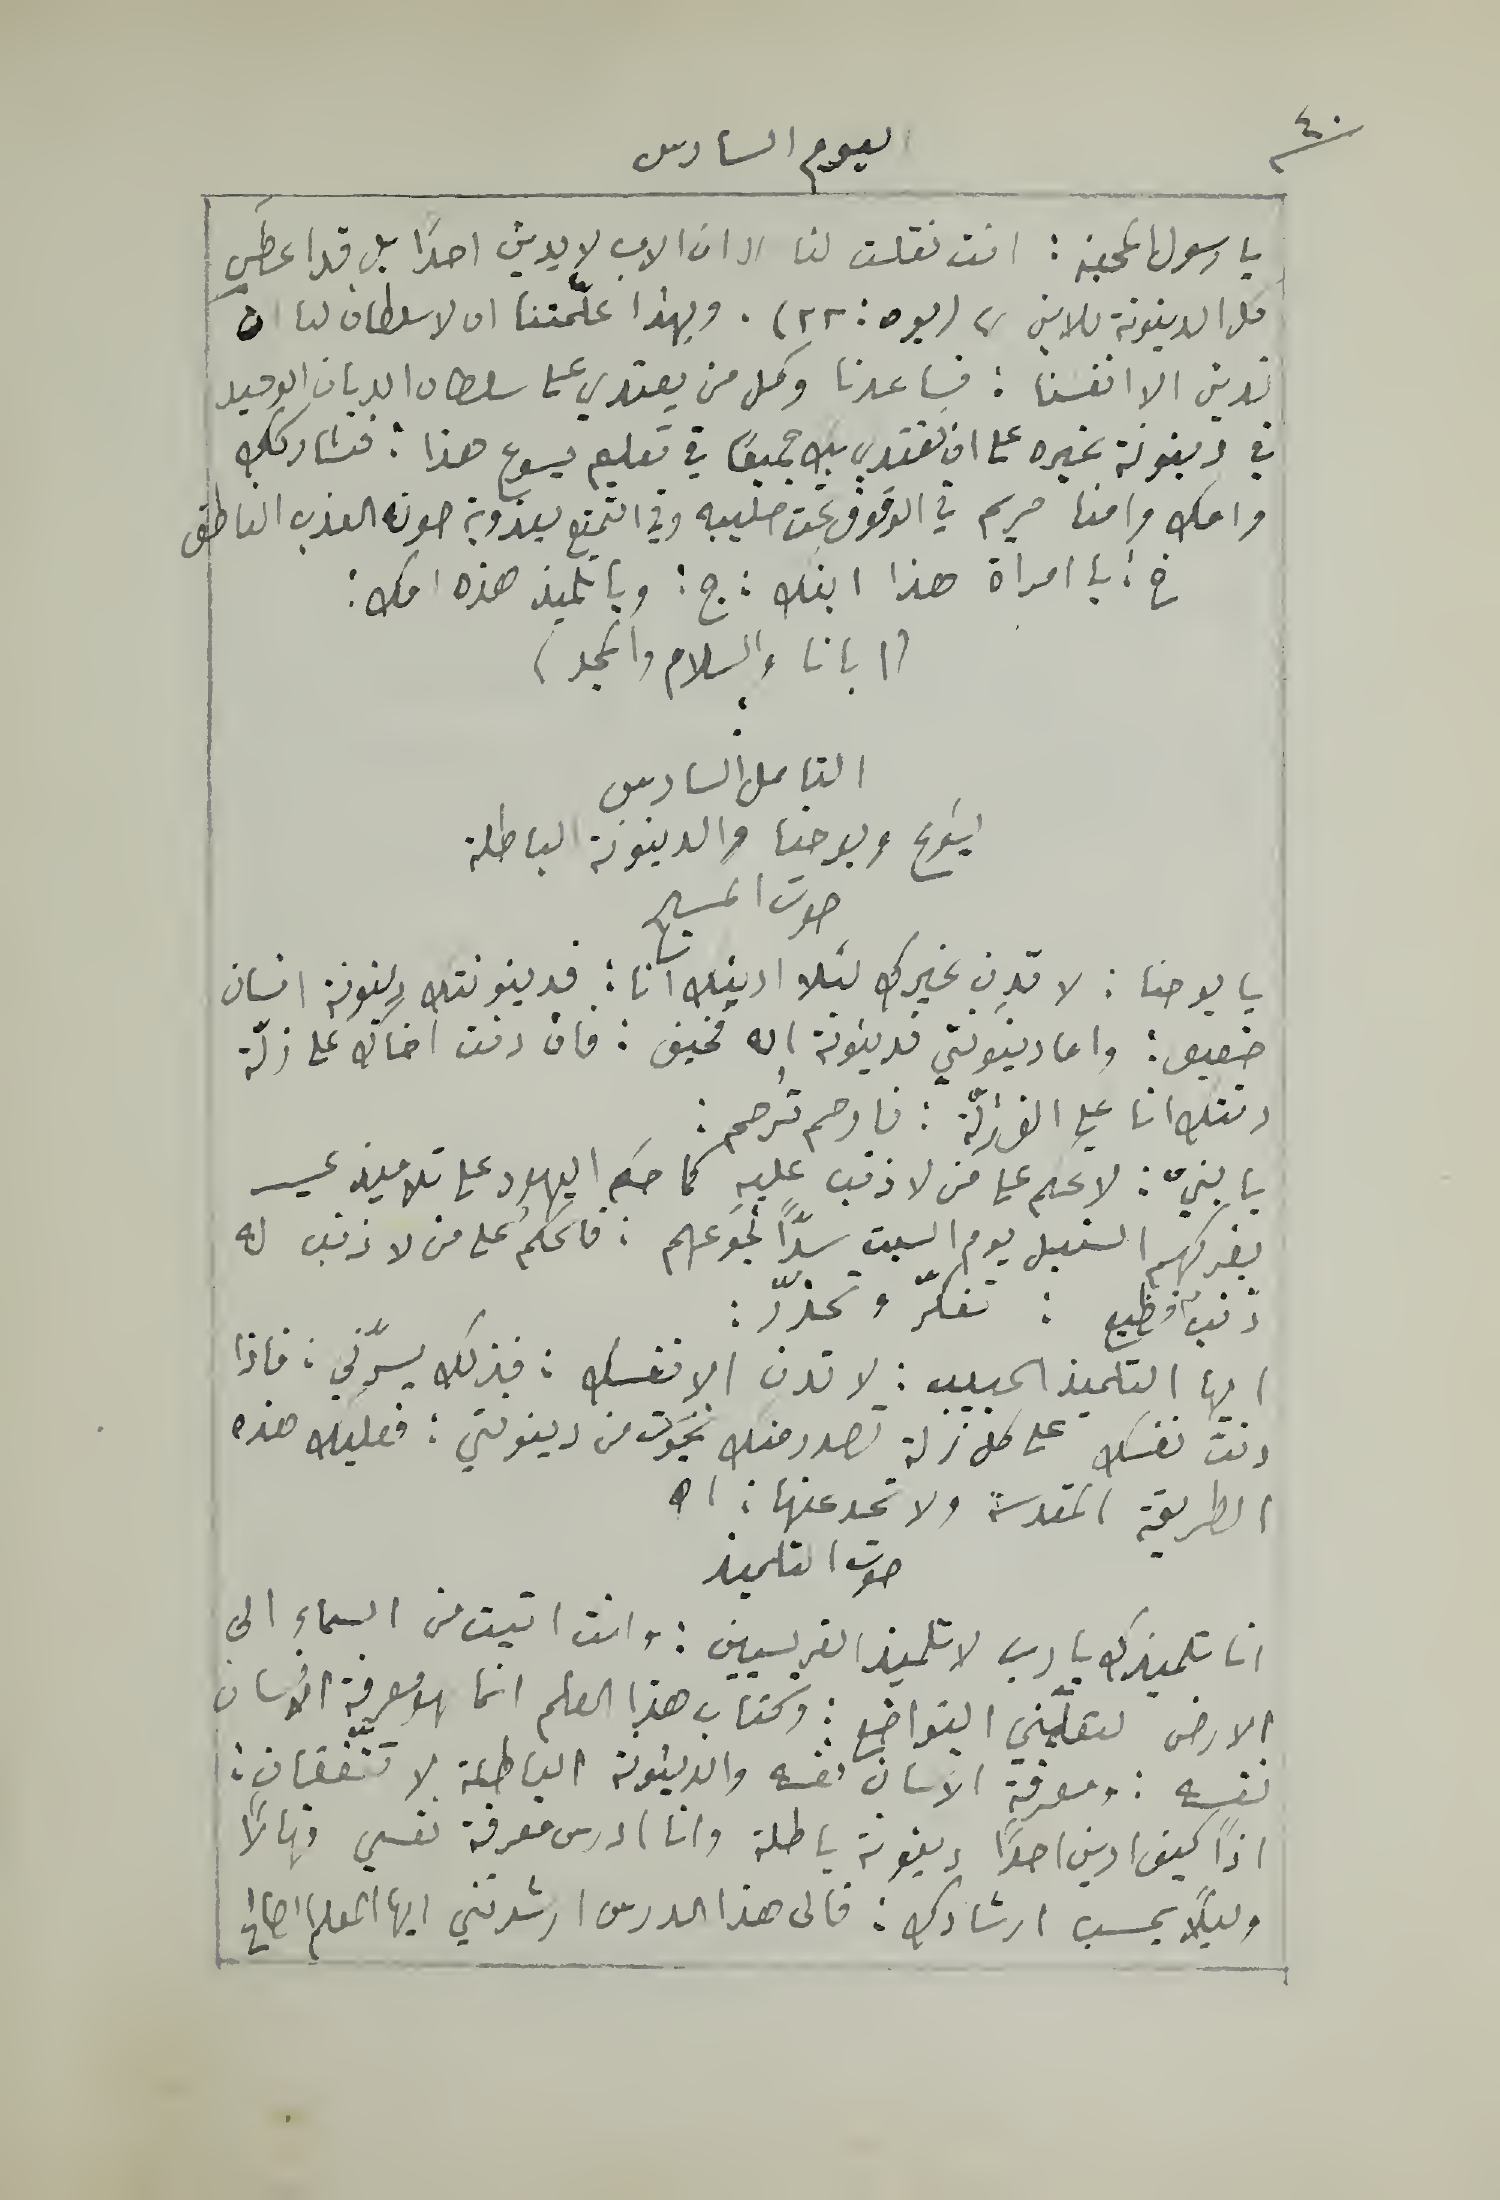 ٤٠
اليوم السادس
يا رسول المحبة : انت نقلت لنا "ان الاب لا يدين احدًا بل قد اعطى
كل الدينونة للابن" (يو ٥ : ٢٢) . وبهذا علّمتنا ان لا سلطان لنا ان
ندين الا انفسنا : فساعدنا وكل من يعتدي على سلطان الديان الوحيد
في دينونة غيره على ان نقتدي بك جميعًا في تعليم يسوع هذا : فنشاركك
وامك وامنا مريم في الوقوف تحت صليبه وفي التمتع بعذوبة صوته العذب الناطق
خ : يا امراة هذا ابنك : ج : ويا تلميذ هذه امك :
(ابانا والسلام والمجد)
التامل السادس
يسوع ويوحنا والدينونة الباطلة
صوت المسيح
يا يوحنا : لا تدِن غيرك لئلا ادينك انا : فدينونتك دينونة انسان
ضعيف : واما دينونتي فدينونة اله مخيف : فان دنت اخاك على زلّة
دنتك انا على الف زلّة : فارحم تُرحم :
يا بنيّ : لا تحكم على من لا ذنب عليه كما حكم اليهود على تلاميذي
بفركهم السنبل يوم السبت سدًّا لجوعهم : فالحكم على من لا ذنب له
ذنب فظيع : تفكّر وتحذّر :
ايها التلميذ الحبيب : لا تدن الا نفسك : فبذلك يسرّني : فاذا
دنتَ نفسك على كل زلة تصدر منك نجوتَ من دينونتي : فعليك هذه
الطريقة المقدسة ولا تحد عنها : اه
صوت التلميذ
انا تلميذك يا رب لا تلميذ الفريسيين : وانت اتيت من السماء الى
الارض لتعلّمني التواضع : وكتاب هذا العلم انما هو معرفة الانسان
نفسه : ومعرفة الانسان نفسه والدينونة الباطلة لا تتّفقان :
اذًا كيف ادين احدًا دينونة باطلة وانا ادرس معرفة نفسي نهارًا
وليلًا بحسب ارشادك : فالى هذا الدرس ارشدتني ايها المعلم الصالح